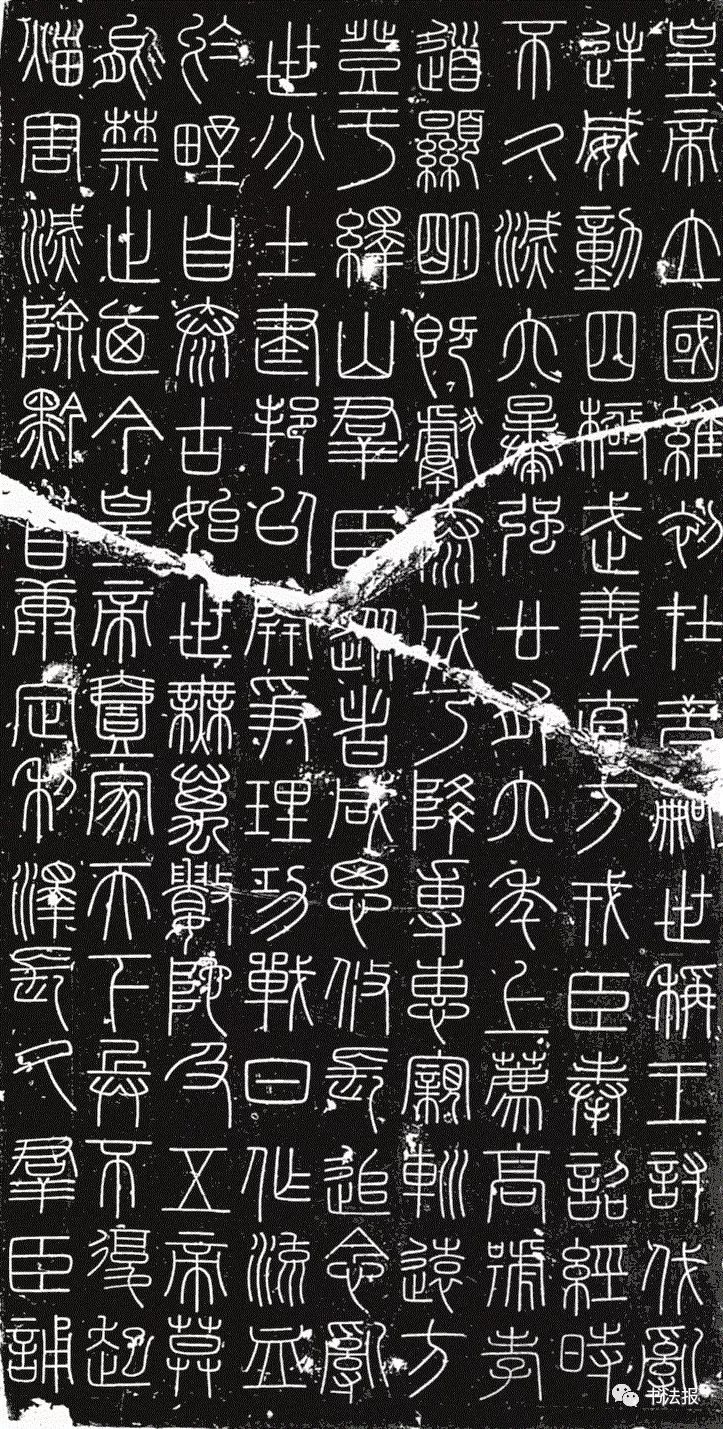 皇帝立國維初在昔嗣世稱王討伐亂
逆威動四極武義直方戎臣奉詔經時
不久滅六暴強廿有六年上薦高號孝
道顯明既獻泰成乃降尃惠親巡遠方
登于繹山群臣從者咸思攸長追念亂
世分土建邦以開爭理功戰日作流血
於野自泰古始世無萬數陀及五帝莫
能禁止廼今皇帝壹家天下兵不復起
災害滅除黔首康定利澤長久群臣誦
书法报